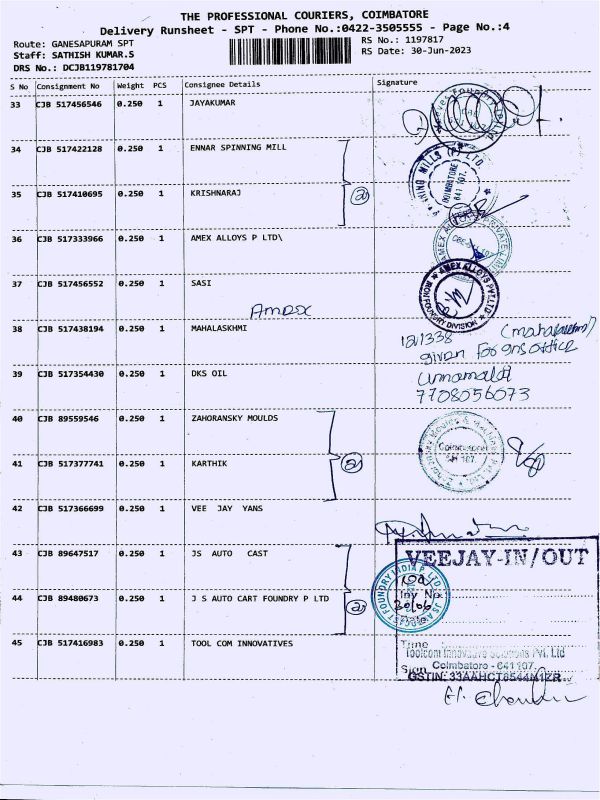 THE PROFESSIONAL COURIERS, COIMBATORE
Delivery Runsheet - SPT - Phone No.:0422-3505555 - Page No.:4
Route: GANESAPURAM SPT
RS No.: 1197817
Staff: SATHISH KUMAR.S
RS Date: 30-Jun-2023
DRS No.: DCJB119781704
S No Consignment No Weight PCS Consignee Details Signature
33 CJB 517456546 0.250 1 JAYAKUMAR
34 CJB 517422128 0.250 1 ENNAR SPINNING MILL
NING MILLS (P) LTD.
COIMBATORE
641 107.
35 CJB 517410695 0.250 1 KRISHNARAJ
2
36 CJB 517333966 0.250 1 AMEX ALLOYS P LTD\
37 CJB 517456552 0.250 1 SASI
AMEX ALLOYS PVT LTD
IRON FOUNDRY DIVISION
Amex
38 CJB 517438194 0.250 1 MAHALASKHMI
given for
39 CJB 517354430 0.250 1 DKS OIL
7708056073
40 CJB 89559546 0.250 1 ZAHORANSKY MOULDS
Coimbatore
641 107.
41 CJB 517377741 0.250 1 KARTHIK
2
42 CJB 517366699 0.250 1 VEE JAY YANS
43 CJB 89647517 0.250 1 JS AUTO CAST
VEEJAY-IN/OUT
JS AUTOCAST FOUNDRY INDIA P. LTD
Inv No:
30/06
Date
44 CJB 89480673 0.250 1 J S AUTO CART FOUNDRY P LTD
2
45 CJB 517416983 0.250 1 TOOL COM INNOVATIVES
Time
Toolcom Innovative Solutions Pvt. Ltd
Coimbatore - 641 107.
Sign
GSTIN: 33AAHCT8544M1ZR